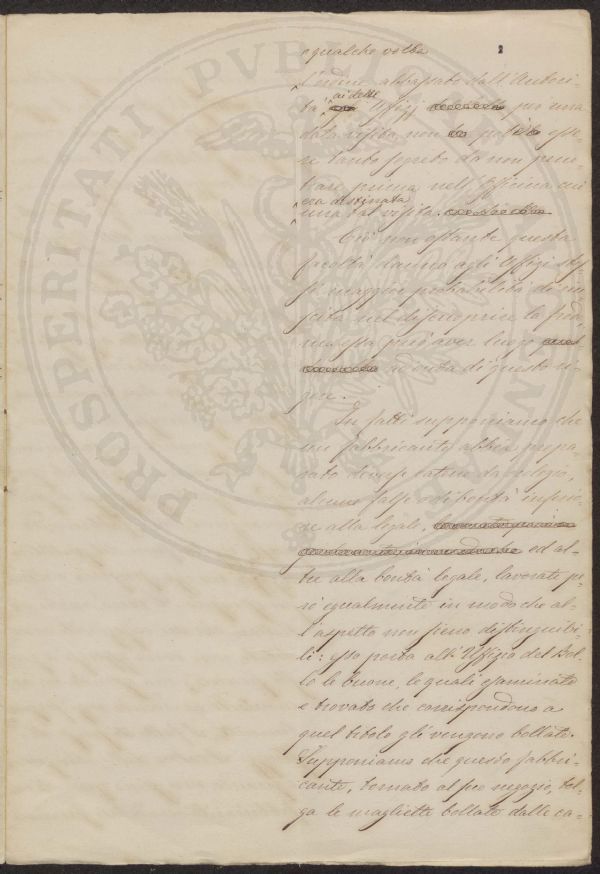 e qualche volta
2
L'ordine abbassato dall'Autori-
tà ai detti Uffizj per una
data visita non potè esse-
re tanto segreto da non pene-
trare prima nell'Officina cui
era destinata
una tal visita.
Ciò non ostante questa
facoltà danno agli Uffizi stes-
si maggior probabilità di riu-
scita nel discoprire la frode
ma essa può aver luogo
ad onta di questo ri-
gore.
In fatti supponiamo che
un fabbricante abbia prepa-
rato diverse catene da orologio,
alcune false o di bontà inferio-
re alla legale,
ed al-
tre alla bontà legale, lavorate pe-
rò egualmente in modo che al-
l'aspetto non sieno distinguibi-
li: esso porta all'Uffizio del Bol-
lo le buone, le quali esaminate
e trovato che corrispondono a
quel titolo gli vengono bollate.
Supponiamo che questo fabbri-
cante, tornato al suo negozio, tol-
ga le magliette bollate dalle ca-
PROSPERITATI PVBLICAE